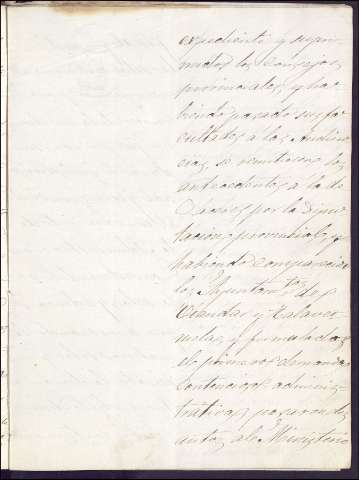 expediente y supri-
midos los Consejos
provinciales, y ha-
biendo pasado sus fa-
cultades á las Audien-
cias, se remitieron los
antecedentes á la de
Cáceres por la Dipu-
tacion provincial, y
habiendo comparecido
los Ayuntamtos de
y Talave-
ruela, y formulado
el primero demanda
contencioso adminis-
trativa, pasaron los
autos al Ministerio